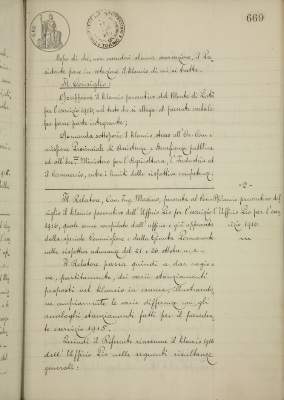 669
Dopo di che, non essendovi alcuna osservazione, il Pre-
sidente pone in votazione il bilancio di cui si tratta.
Il Consiglio
approva il bilancio preventivo del Monte di Pietà
per l'esercizio 1916, nel testo che si allega al presente verbale
per farne parte integrante;
Domanda sottoporsi il bilancio stesso all'On. Com-
missione Provinciale di Assistenza e Beneficenza pubblica
ed all'On. Ministero per l'Agricoltura, l'Industria ed
il Commercio, entro i limiti delle rispettive competenze.
- 2 -
Il Relatore, Cav. Ing. presenta al Con-
siglio il bilancio preventivo dell'Ufficio Pio per l'esercizio
1916, quale venne compilato dall'ufficio e già approvato
dalla speciale Commissione e dalla Giunta Permanente
nelle rispettive adunanze del 21 e 26 ottobre u.s.
Bilancio preventivo del
l'Ufficio Pio per l'eser-
cizio 1916.
Il Relatore passa quindi a dar ragio-
ne, partitamente, dei varii stanziamenti
proposti nel bilancio in esame, illustrando-
ne ampiamente le varie differenze cogli
analoghi stanziamenti fatti per il preceden-
te esercizio 1915.
Quindi il Riferente riassume il bilancio 1916
dell'Ufficio Pio nelle seguenti risultanze
generali: